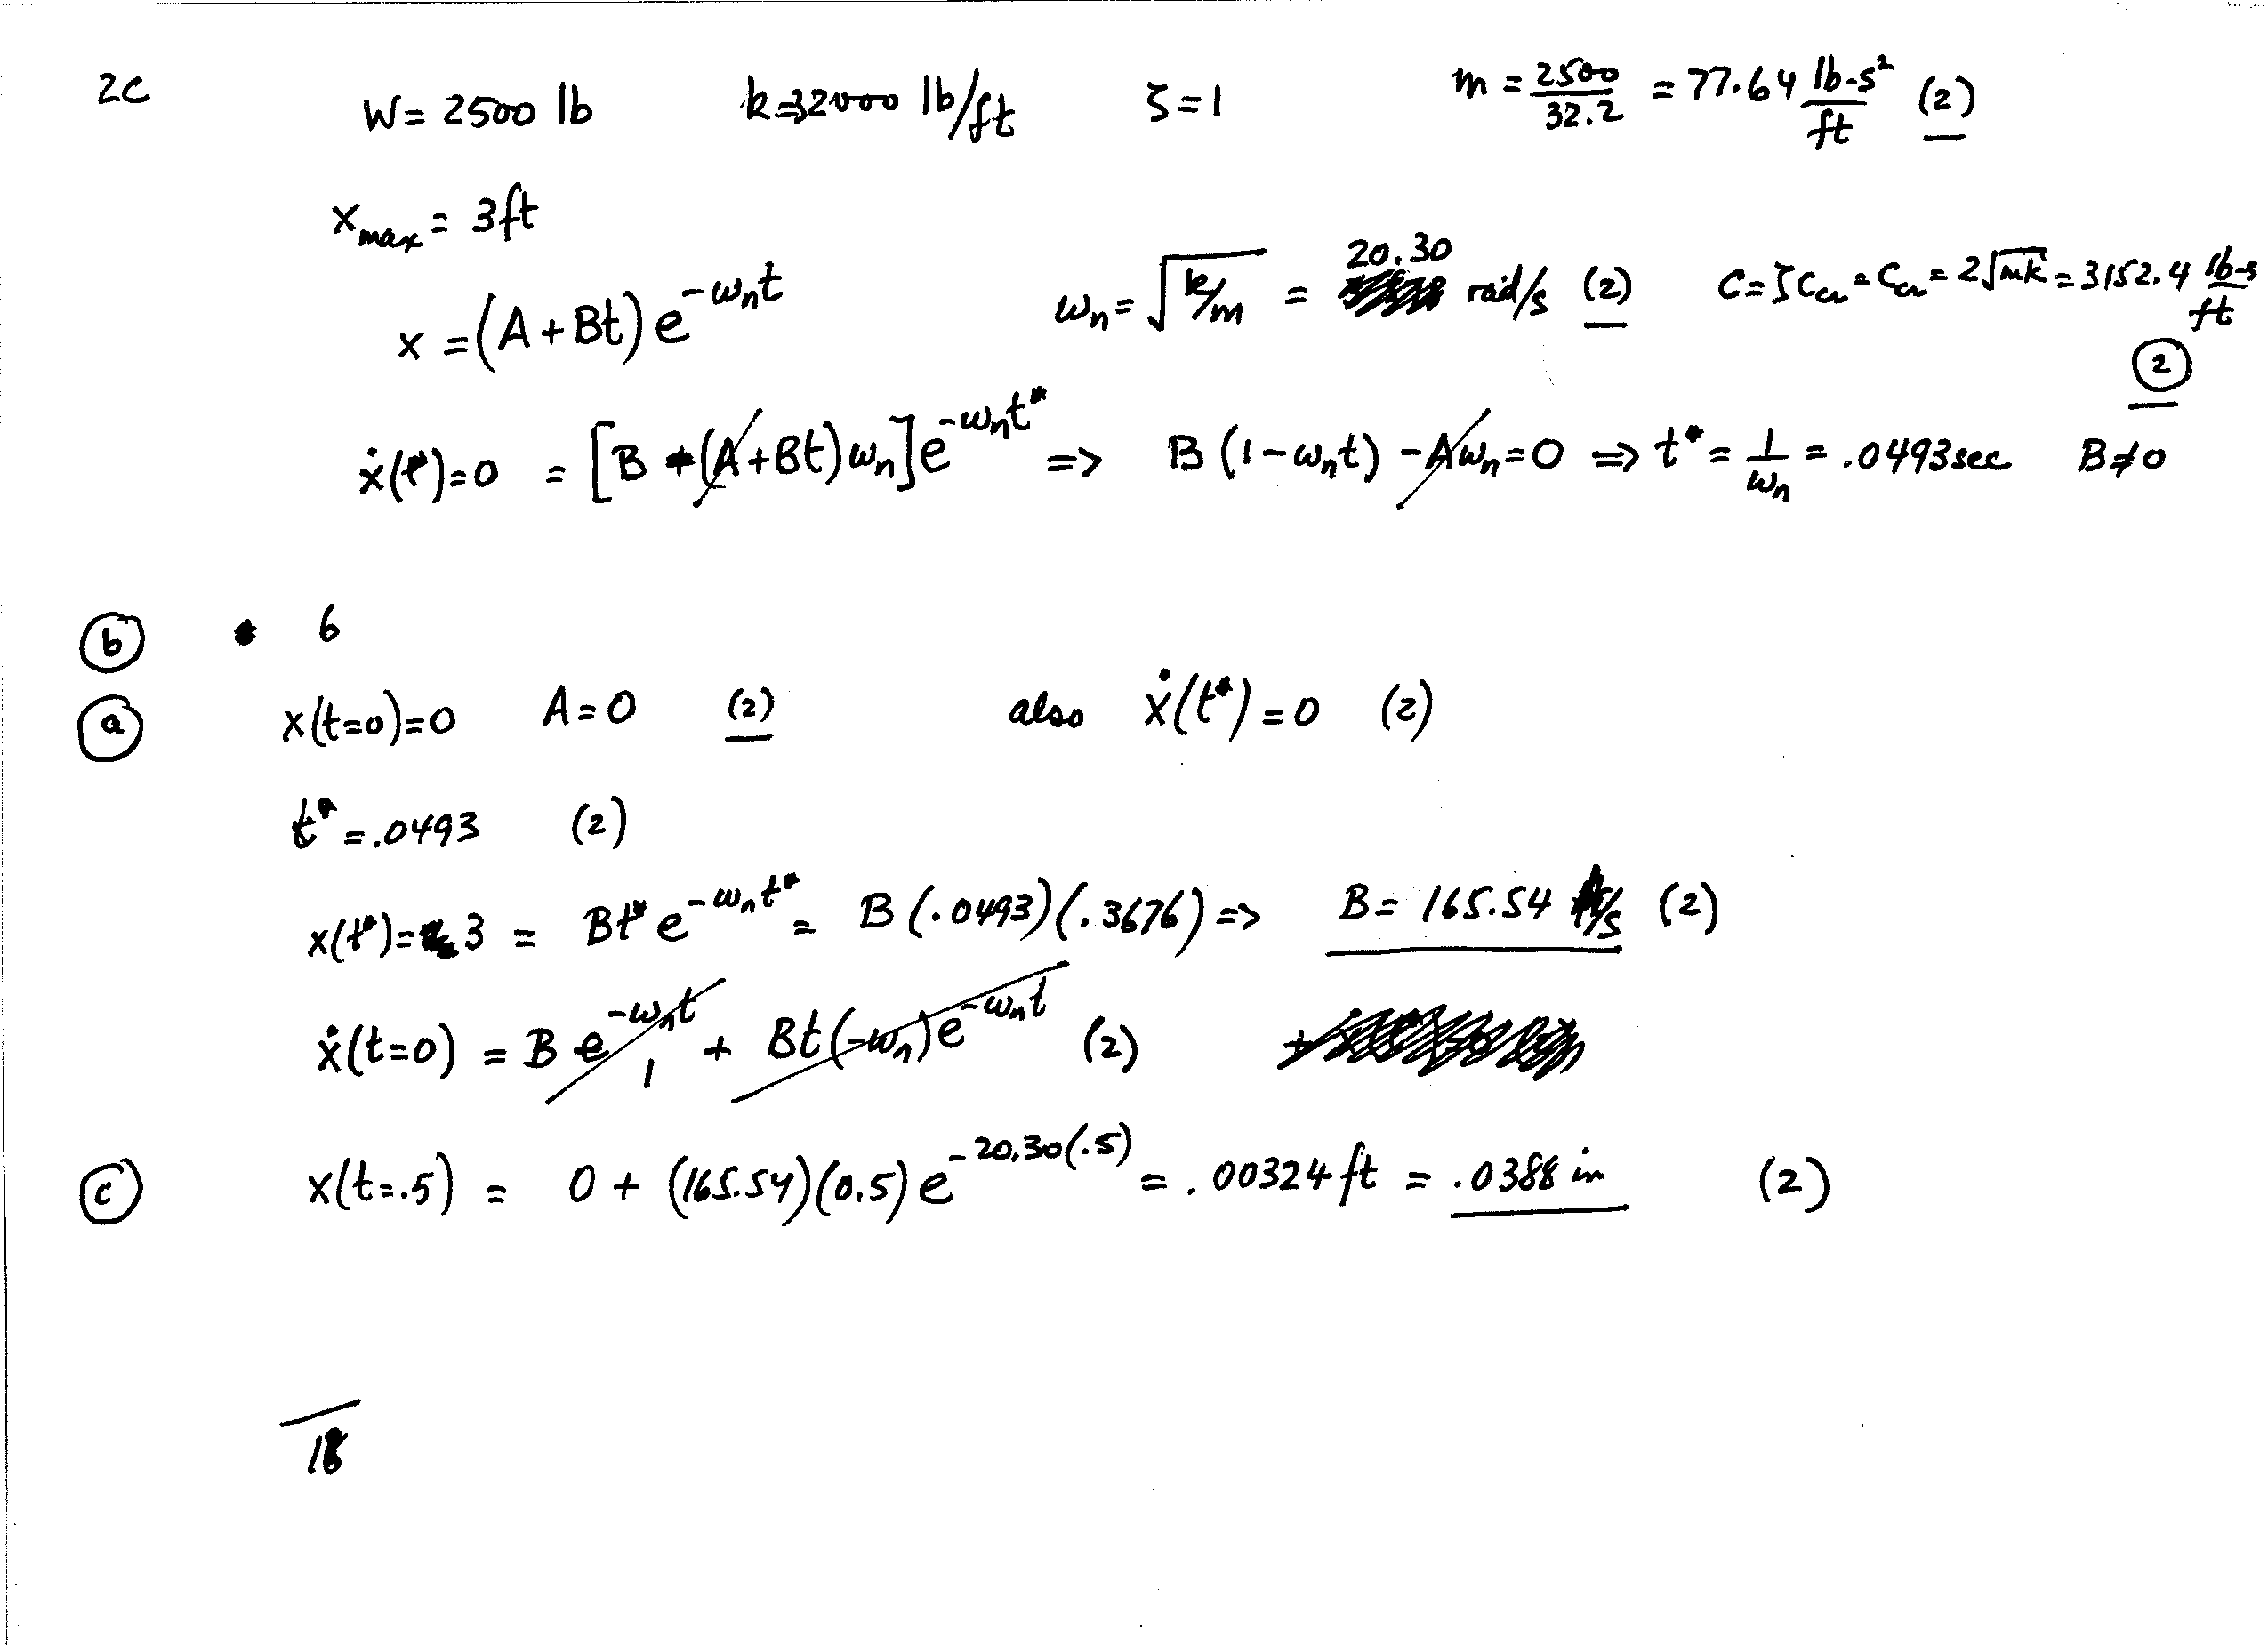 2c W = 2500 lb k=32000 lb/ft ζ=1 m = 2500/32.2 = 77.64 lb-s²/ft (2)
x_max = 3ft
x = (A+Bt) e^{-ω_n t} ω_n = √(k/m) = 20.30 rad/s (2) C = ζC_cr = C_cr = 2√mk = 3152.4 lb-s/ft
(2)
ẋ(t*)=0 = [B - (A+Bt)ω_n] e^{-ω_n t*} => B(1-ω_n t) - Aω_n = 0 => t* = 1/ω_n = .0493 sec B≠0
(b) 6
(a) x(t=0)=0 A=0 (2) also ẋ(t*)=0 (2)
t* = .0493 (2)
x(t*)= 3 = Bt* e^{-ω_n t*} = B(.0493)(.3676) => B = 165.54 ft/s (2)
ẋ(t=0) = B e^{-ω_n t} 1 + Bt(-ω_n) e^{-ω_n t} (2)
(c) x(t=.5) = 0 + (165.54)(0.5) e^{-20.30(.5)} = .00324 ft = .0388 in (2)
18